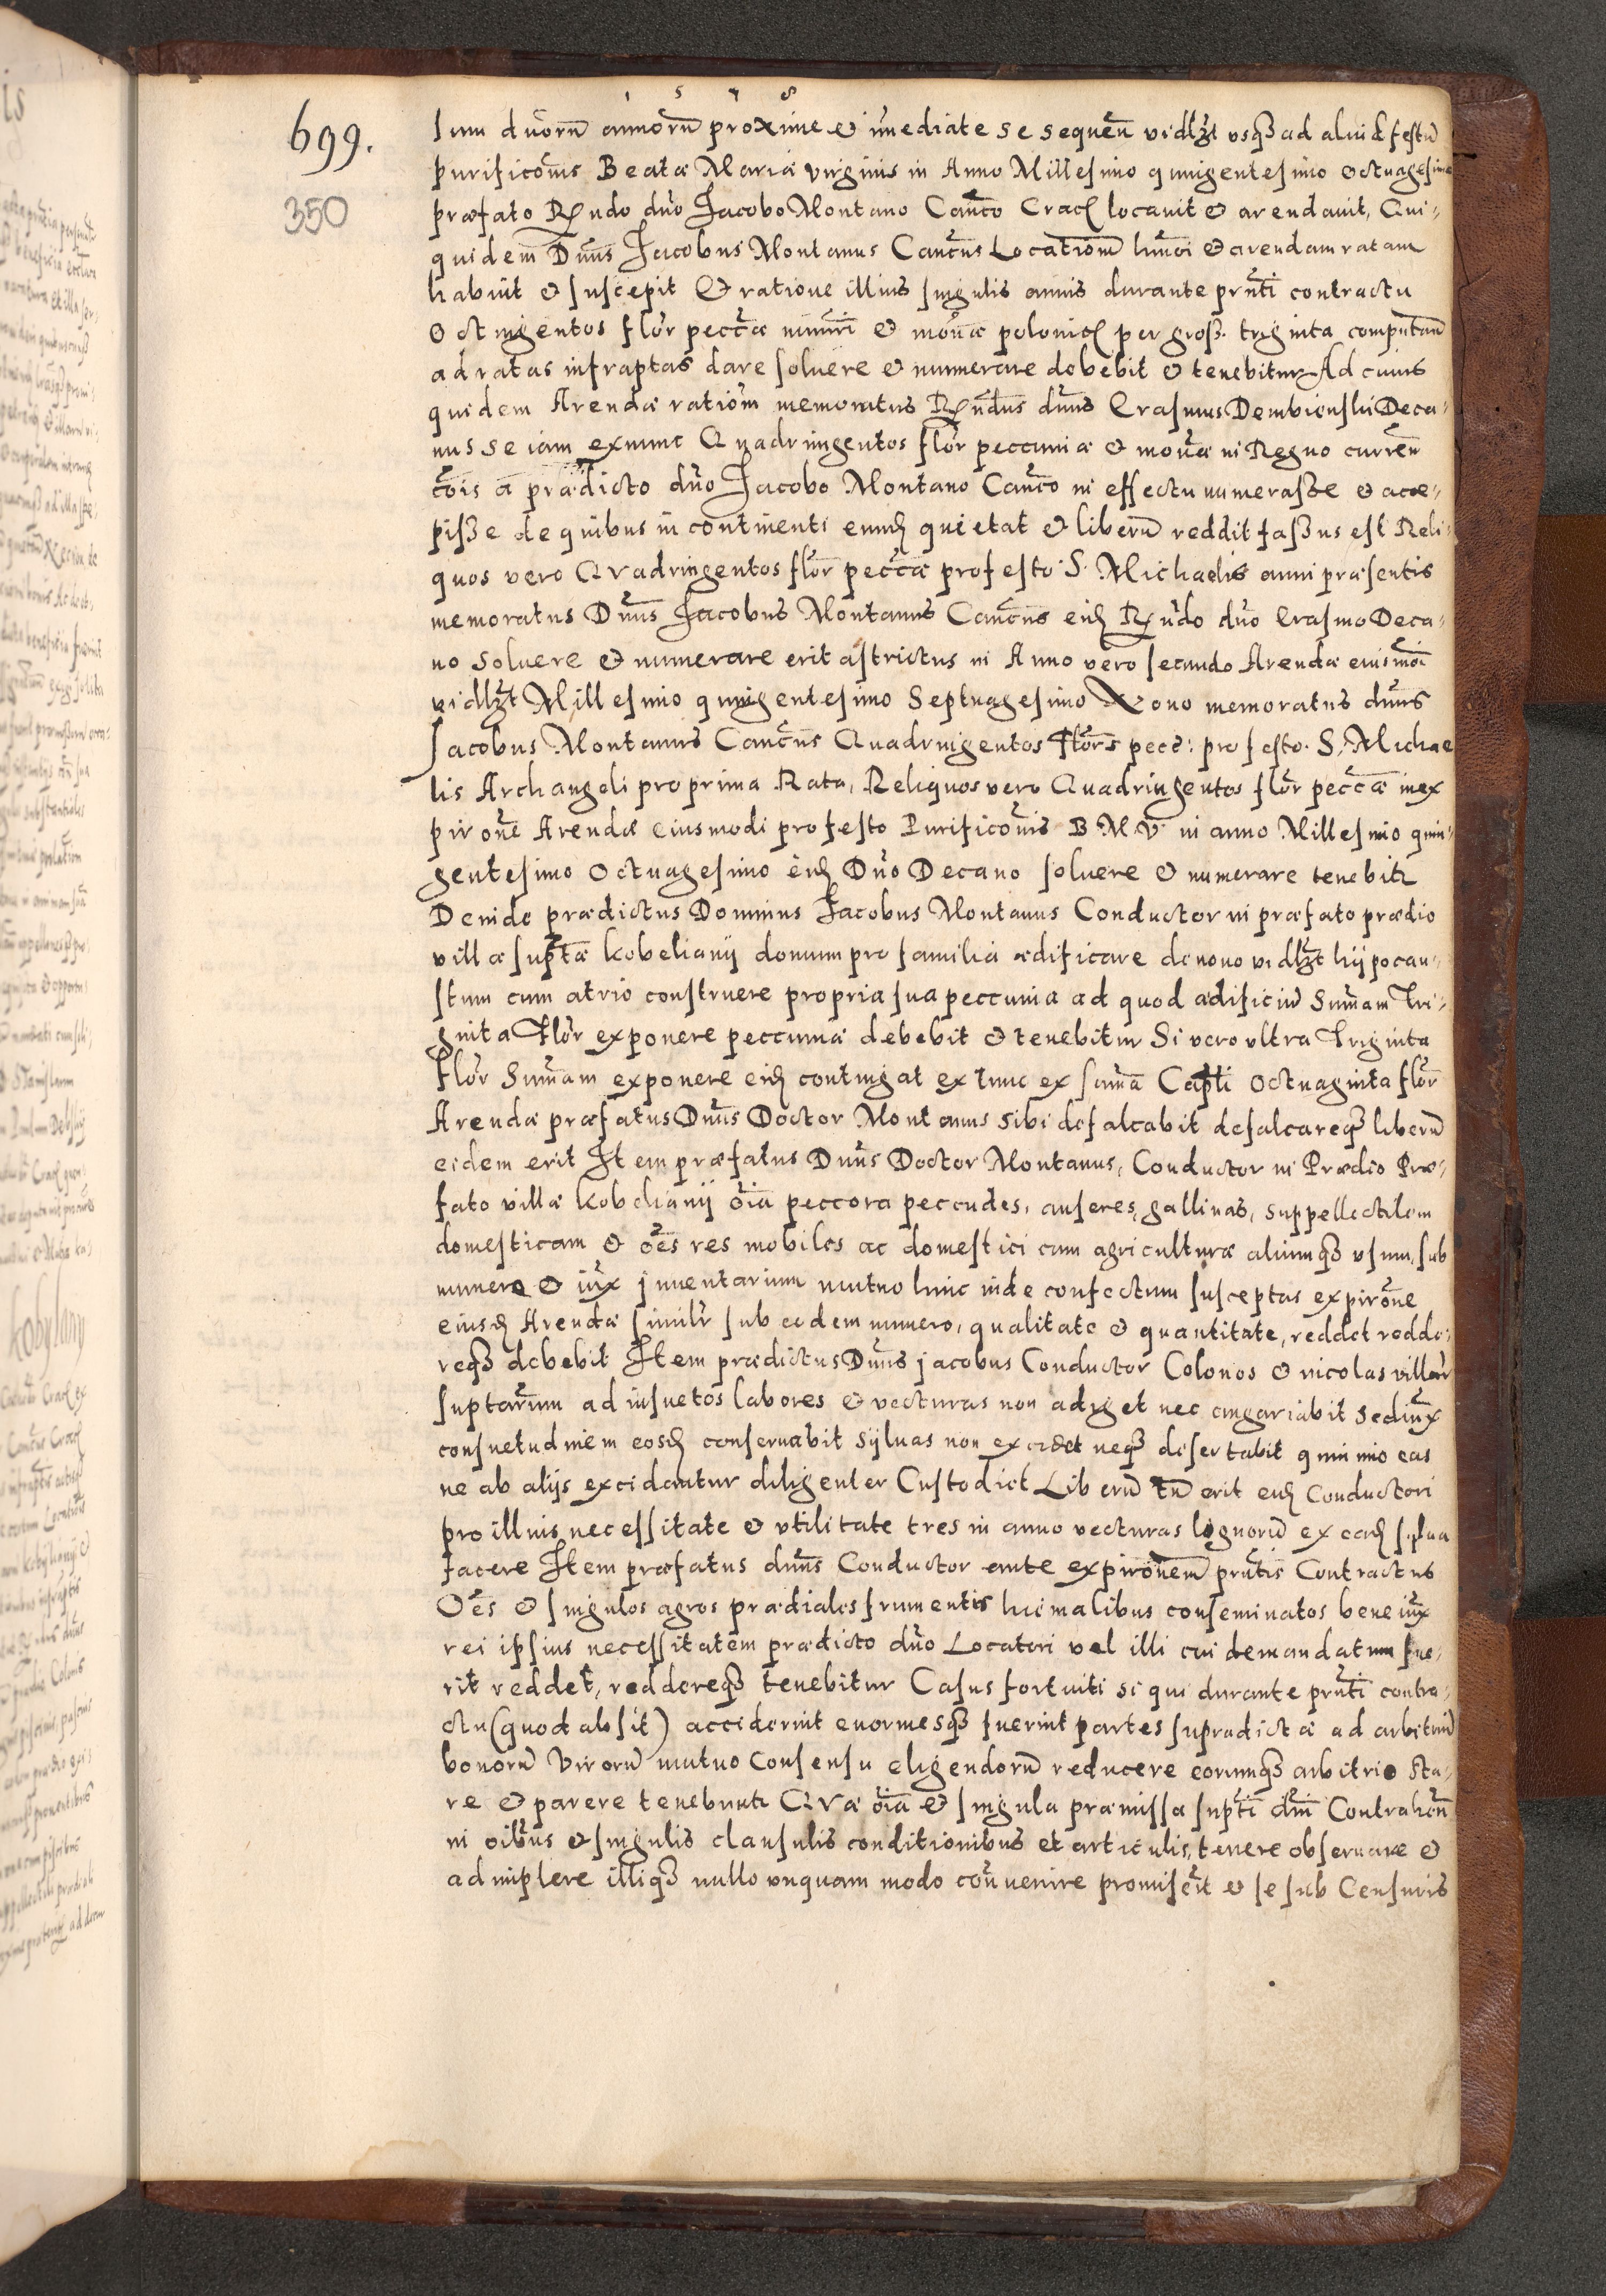 1 5 7 8
699.
350
sum duorū annorū proxime et īmediate se sequen̄ vidlꝫt usqꝫ ad aliud festū
purificōnis Beatæ Mariæ virginis in Anno Millesimo quingentesimo octuagesimo
præfato Rn̄do dn̄o Jacobo Montano Can̄co Crac̄ locavit et arendavit, Qui-
quidem Dn̄us Jacobus Montanus Can̄cus Locatiōm hmōi et arendam ratam
habuit et suscepit Et ratione illius singulis annis durante prn̄ti contractu
Octingentos flor̄ pecc̄æ num̄ri et mon̄æ polonic̄ per gross. triginta computan̄
ad ratas infraptas dare solvere et numerare debebit et tenebitur Ad cuius
quidem Arendæ ratiōm memoratus Rn̄dus dn̄us Erasmus Dembienski Deca-
nus se iam exnunc Quadringentos flor̄ peccuniæ et mon̄æ in Regno curren̄
cōis a prædicto dn̄o Jacobo Montano Can̄co in effectu numerasse et acce-
pisse de quibus in continenti eund̄ quietat et liberū reddit fassus est Reli-
quos vero Quadringentos flor̄ pecc̄æ pro festo S. Michaelis anni præsentis
memoratus Dn̄us Jacobus Montanus Can̄cus eid̄ Rn̄do dn̄o Erasmo Deca-
no solvere et numerare erit astrictus in Anno vero secundo Arendæ eiusmōi
vidlꝫt Millesimo quingentesimo Septuagesimo Nono memoratus dn̄us
Jacobus Montanus Can̄cus Quadringentos flor̄s pecc: pro festo S. Michae
lis Archangeli pro prima Rata, Reliquos vero Quadringentos flor̄ pecc̄æ in ex
pirōne Arendæ eiusmodi pro festo Purificōnis B M V in anno Millesimo quin-
gentesimo Octuagesimo eid̄ Dn̄o Decano solvere et numerare tenebit̄
Deinde prædictus Dominus Jacobus Montanus Conductor in præfato prædio
villæ suptæ Kobelianij domum pro familia ædificare de novo vidlꝫt hijpocau-
stum cum atrio construere propria sua peccunia ad quod ædificiū Sum̄am Tri-
ginta Flor̄ exponere peccuniæ debebit et tenebitur Si vero ultra Triginta
flor̄ Sum̄am exponere eid̄ contingat extunc ex sum̄a Capti Octuaginta flor̄
Arendæ præfatus Dn̄us Doctor Montanus sibi defalcabit defalcareqꝫ liberū
eidem erit Item præfatus Dn̄us Doctor Montanus, Conductor in Prædio Præ-
fato villæ Kobelianij oīa peccora peccudes, anseres, gallinas, suppellectilem
domesticam et oēs res mobiles ac domestici cum agriculturæ aliumqꝫ usum, sub
numero et iux̄ inventarium mutuo hinc inde confectum susceptas expirōne
eiusd̄ Arendæ similr̄ sub eodem numero, qualitate et quantitate, reddet redde-
reqꝫ debebit Item prædictus Dn̄us jacobus Conductor Colonos et incolas villar̄
suptarum ad insuetos labores et vecturas non adiget nec angariabit sed iux̄
consuetudinem eosd̄ conservabit Sijlvas non excidet neqꝫ desertabit quinimo eas
ne ab alijs excidantur diligenter Custodiet Liberū tn̄ erit eid̄ Conductori
pro illius necessitate et utilitate tres in anno vecturas lignorū ex ead̄ sylva
facere Item præfatus dn̄us Conductor ante expirōnem prn̄tis Contractus
Oēs et singulos agros prædiales frumentis hiemalibus conseminatos bene iux̄
rei ipsius necessitatem prædicto dn̄o Locatori vel illi cui demandatum fue-
rit reddet, reddereqꝫ tenebitur Casus fortuiti si qui durante prn̄ti contra-
ctu (quod absit) acciderint enormesqꝫ fuerint partes supradictæ ad arbitriū
bonorū Virorū mutuo Consensu eligendorū reducere eorumqꝫ arbitrio sta-
re et parere tenebunt̄ Quæ oīa et singula præmissa supti dn̄i Contrahen̄
in oībus et singulis clausulis conditionibus et articulis, tenere observare et
adimplere illiqꝫ nullo unquam modo con̄venire promiser̄it et se sub Censuris